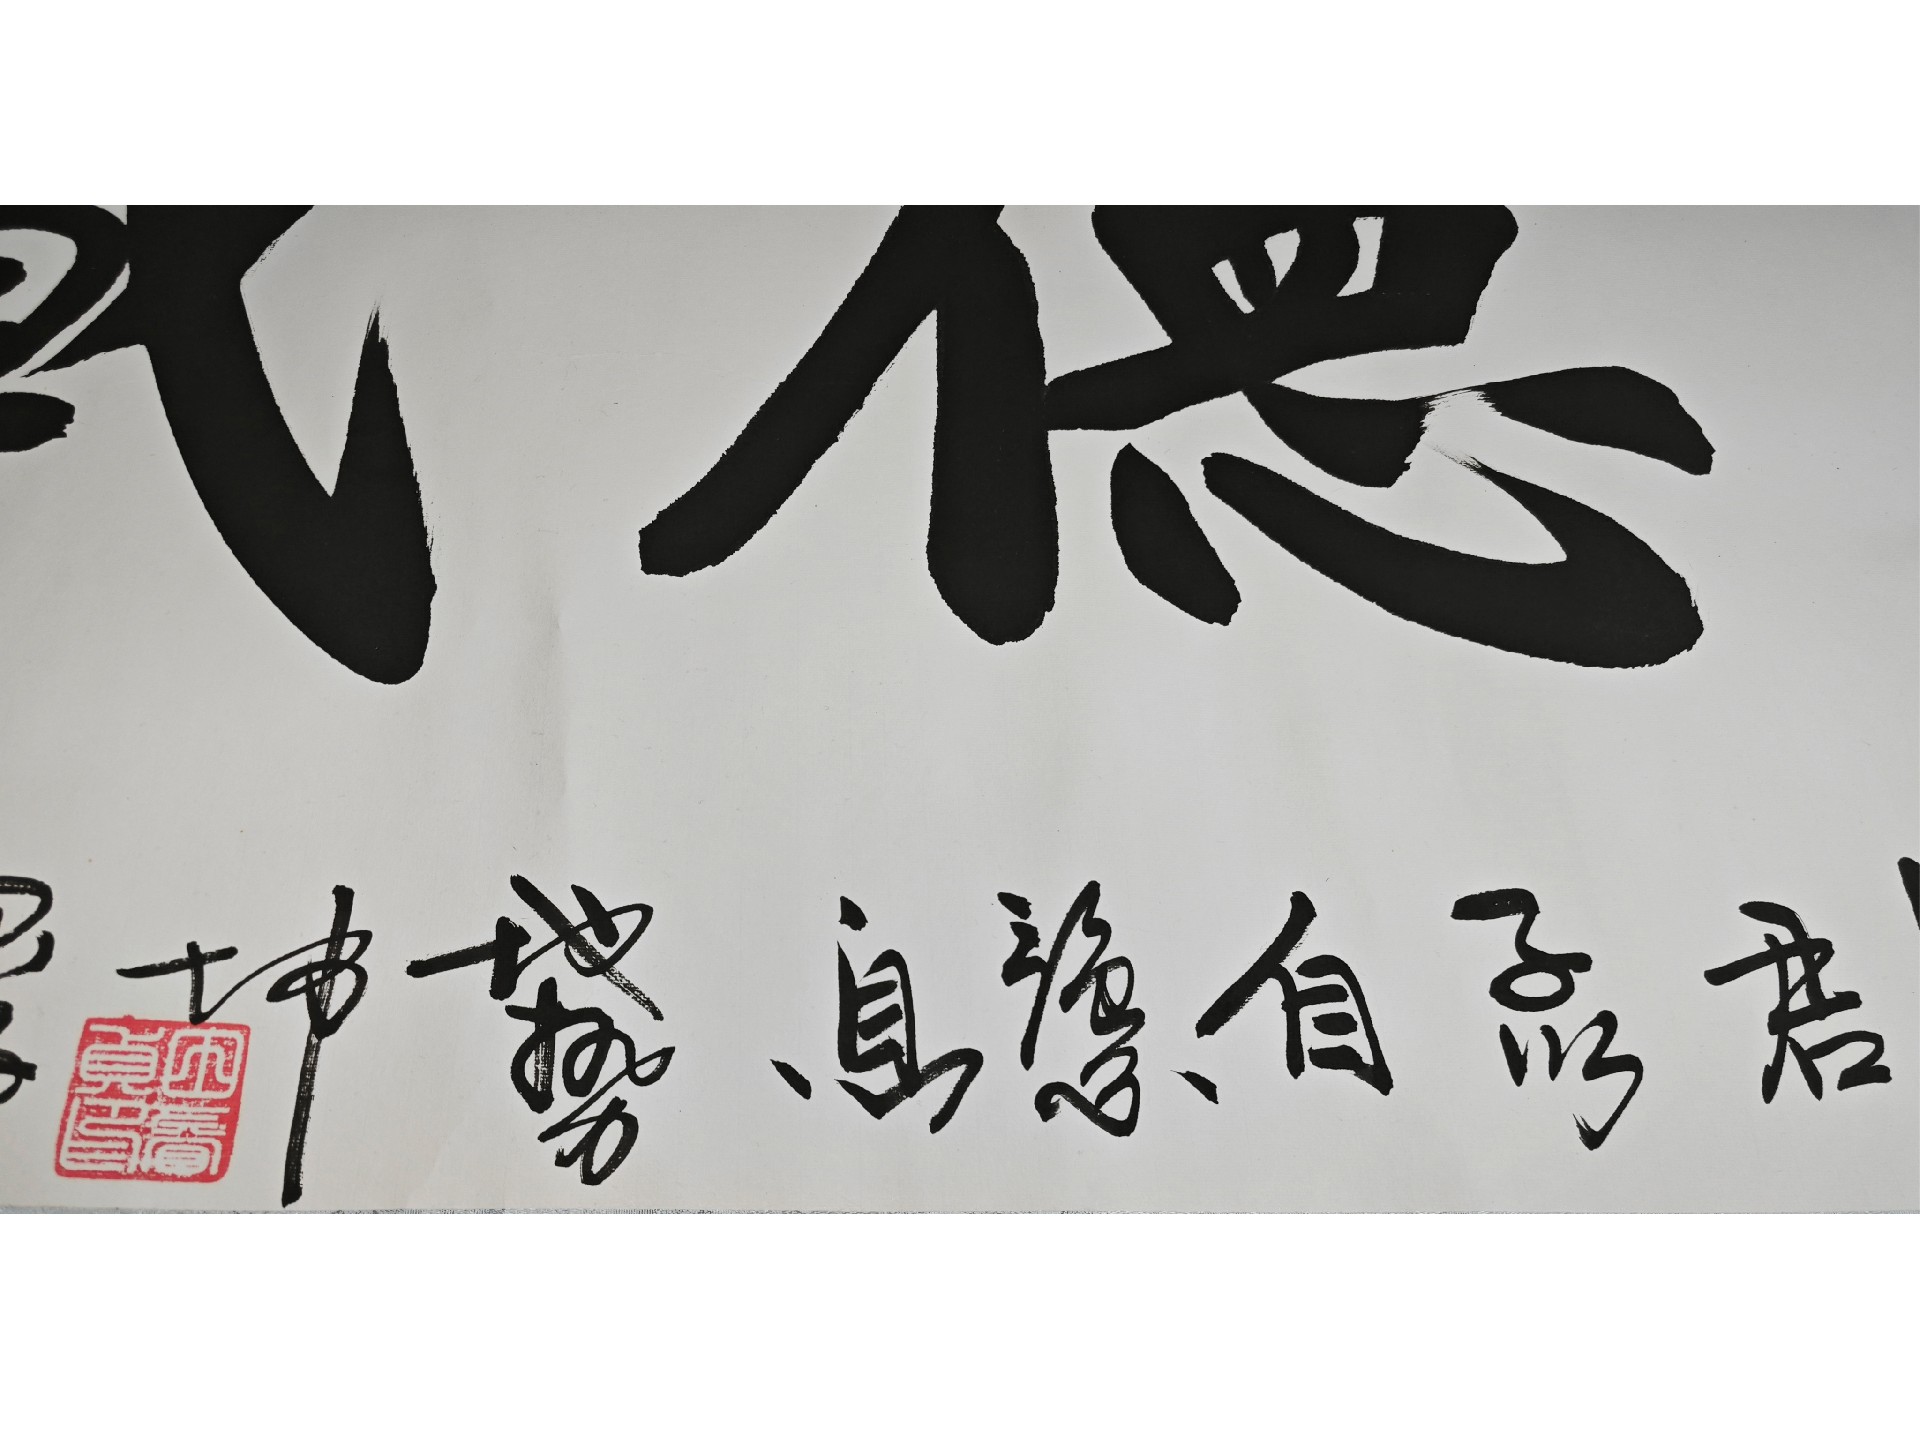 德
君
子以
自
強不
息
地勢
坤